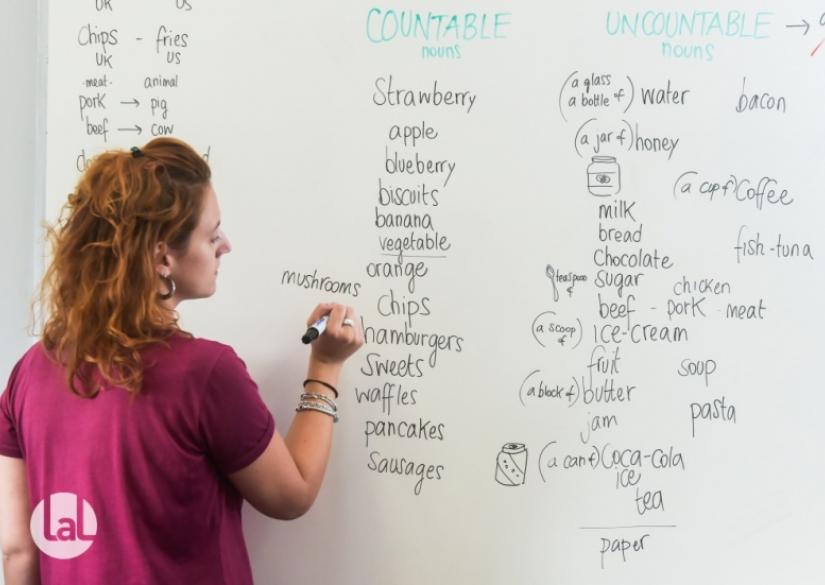 UK US
Chips - fries
UK US
-meat- animal
pork → pig
beef → cow
COUNTABLE
nouns
Strawberry
apple
blueberry
biscuits
banana
vegetable
orange
mushrooms
chips
hamburgers
Sweets
waffles
pancakes
Sausages
UNCOUNTABLE →
nouns
(a glass
a bottle of) water bacon
(a jar of) honey
(a cup of) Coffee
milk
bread fish-tuna
Chocolate
teaspoon of sugar chicken
beef - pork - meat
(a scoop of) ice-cream
fruit soup
(a block of) butter
jam pasta
(a can of) Coca-cola
ice
tea
paper
LaL